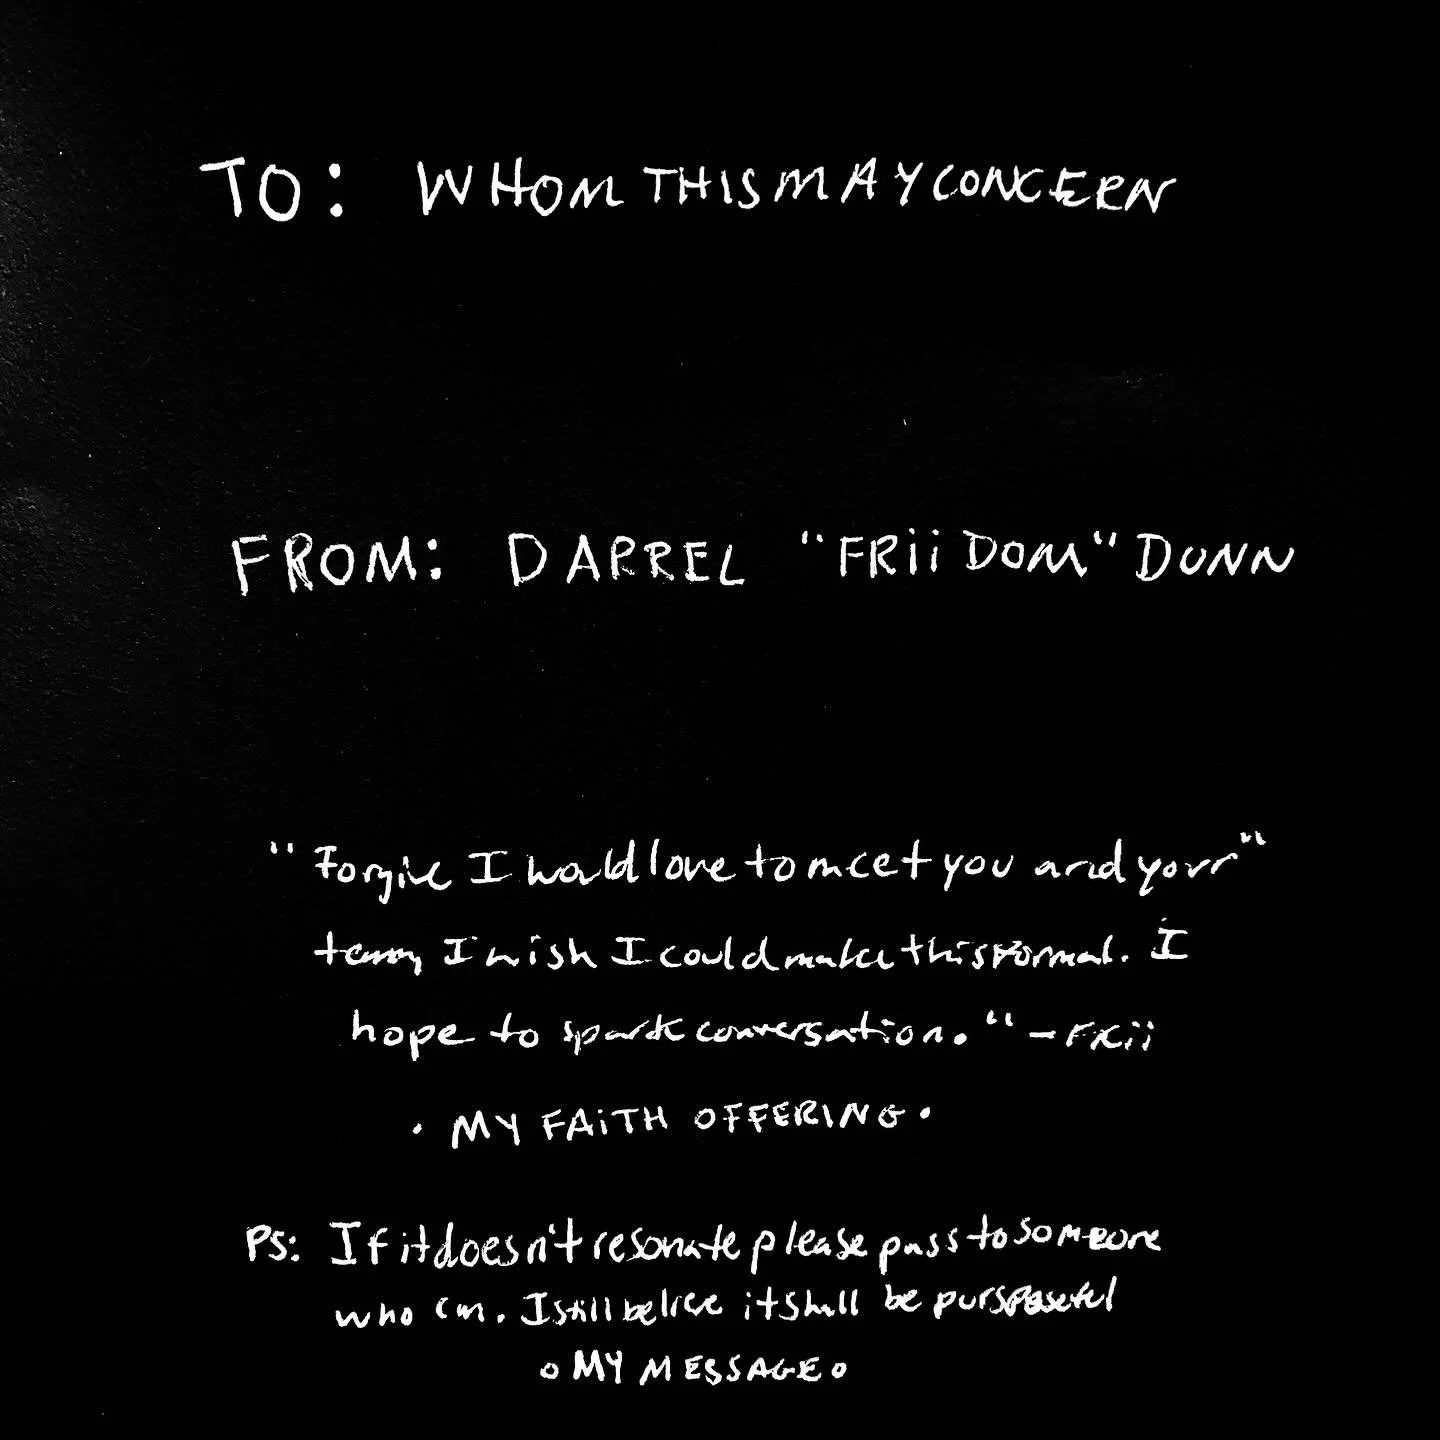 TO: WHOM THIS MAY CONCERN
FROM: DARREL "FRii DOM" DUNN
"Forgive I would love to meet you and your"
team, I wish I could make this formal. I
hope to spark conversation." - FRii
• MY FAiTH OFFERING •
PS: If it doesn't resonate please pass to someone
who can. I still believe it shall be
o MY MESSAGE o